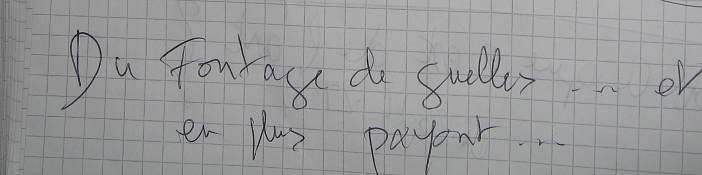 Du Fontage de guelles ... et
en plus payant ...